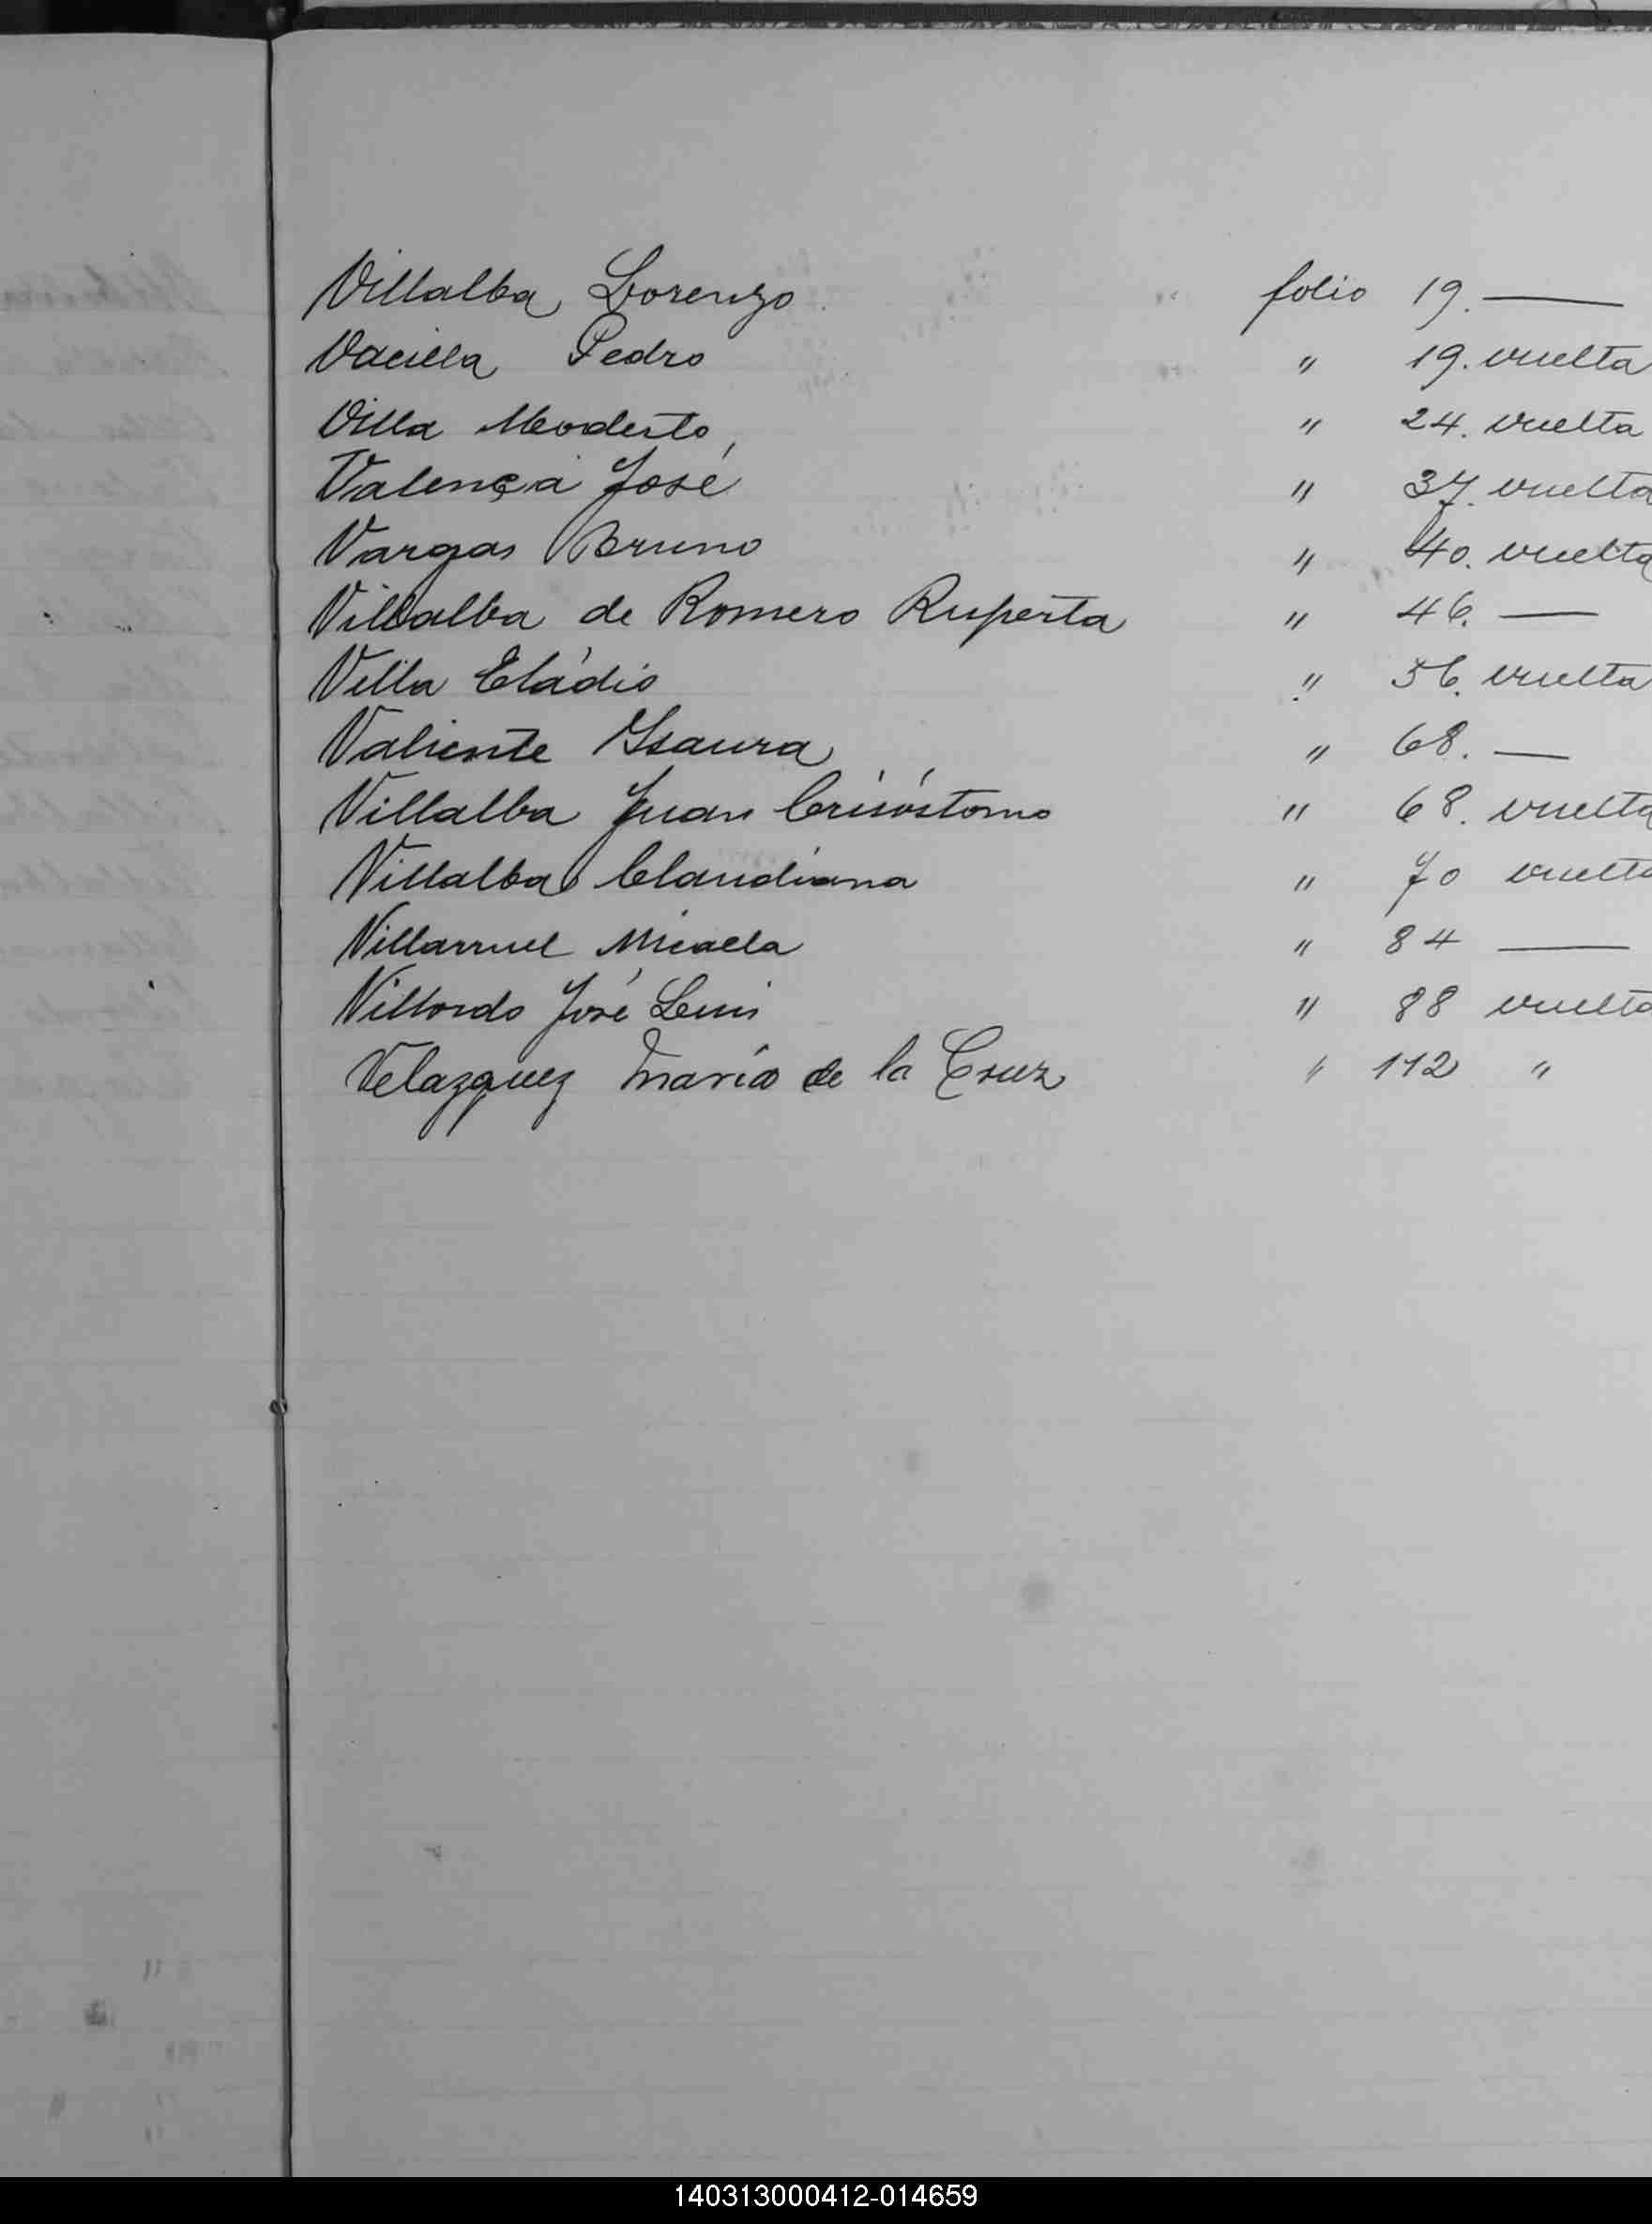 Villalba Lorenzo folio 19. —
Vacilla Pedro " 19. vuelta
Villa Modesto " 24. vuelta
Valença José " 37. vuelta
Vargas Bruno " 40. vuelta
Villalba de Romero Ruperta " 46. —
Villa Eládio " 56. vuelta
Valiente Ysaura " 68. —
Villalba Juan Crisóstomo " 68. vuelta
Villalba Claudiana " 70 vuelta
Villarruel Micaela " 84 —
Villordo José Luis " 88 vuelta
Velazquez María de la Cruz " 112 "
140313000412-014659